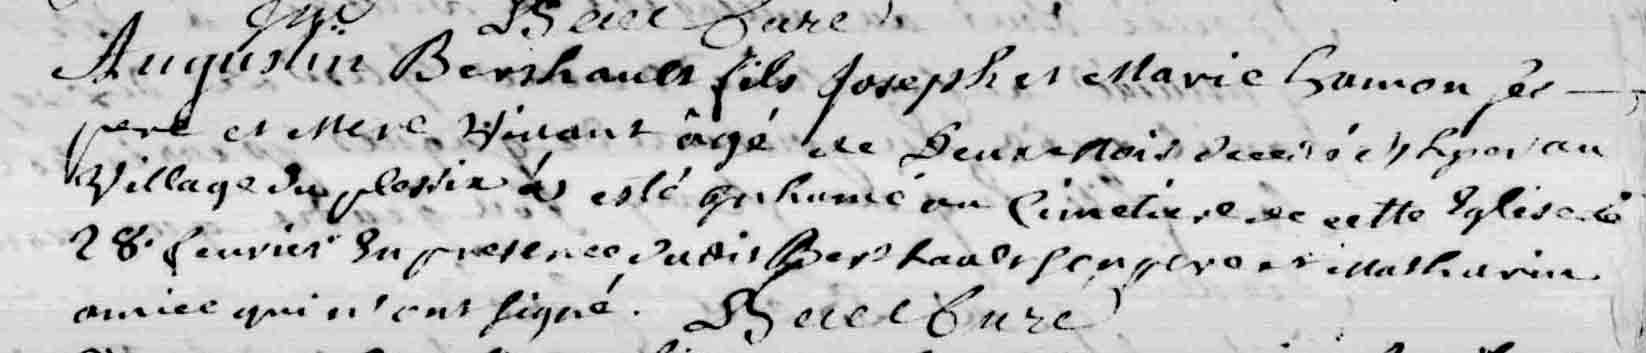 Curé
Augustin Berthault fils Joseph et Marie hamon ses
pere et Mere Vivant âgé de Deux Mois decedé au
Village du plessix a esté inhumé au Cimetiere de cette Eglise le
28 feurier En presence dudit Berthault son pere et Mathurin
qui n'ont signé. Curé